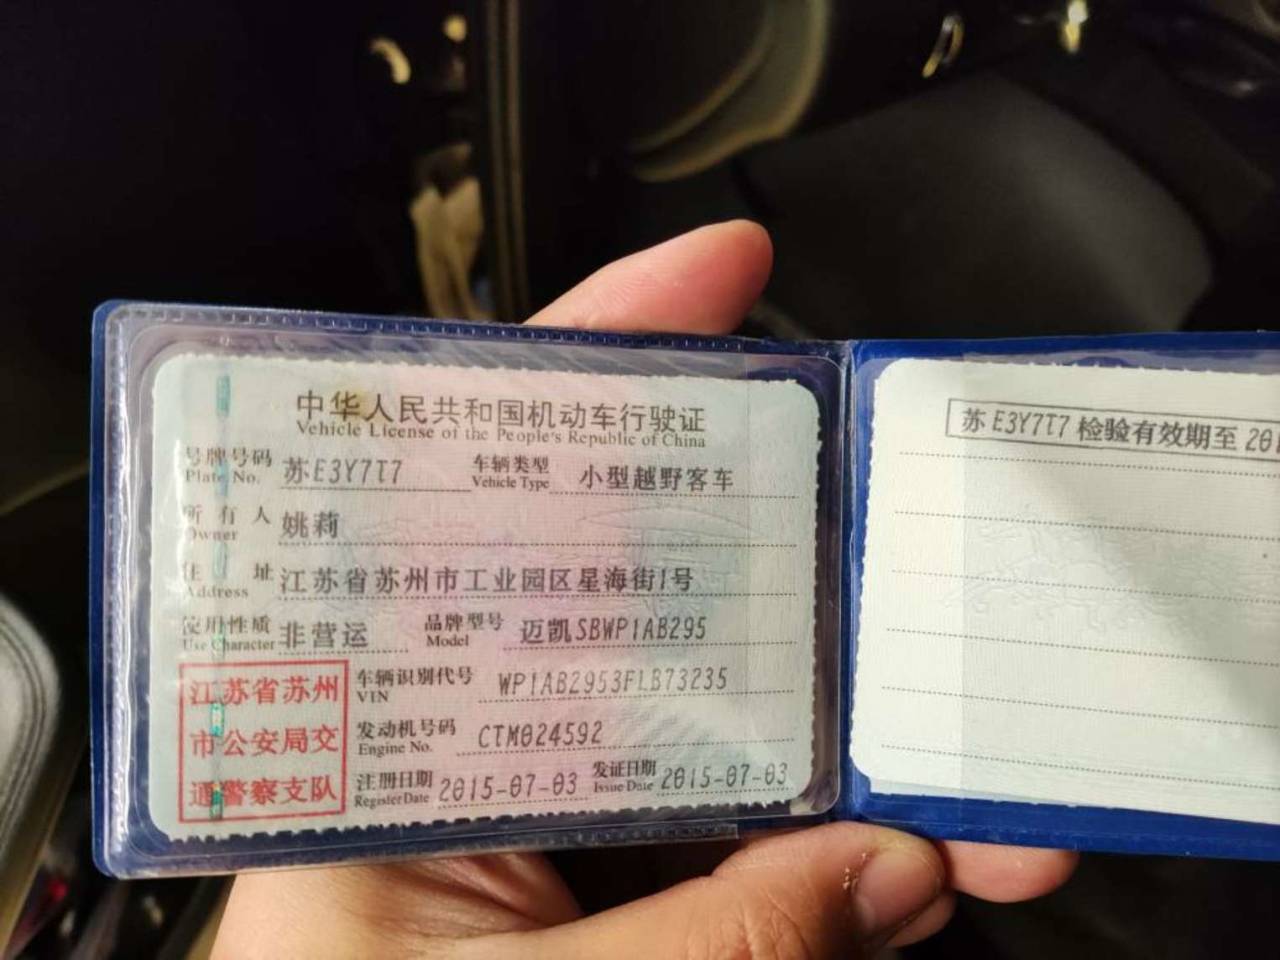 中华人民共和国机动车行驶证
Vehicle License of the People's Republic of China
号牌号码 苏E3Y7T7 车辆类型 小型越野客车
Plate No. Vehicle Type
所有人 姚莉
Owner
住址 江苏省苏州市工业园区星海街1号
Address
使用性质 非营运 品牌型号 迈凯SBWP1AB295
Use Character Model
车辆识别代号 WP1AB2953FLB73235
VIN
发动机号码 CTM024592
Engine No.
注册日期 2015-07-03 发证日期 2015-07-03
Register Date Issue Date
江苏省苏州
市公安局交
通警察支队
苏E3Y7T7 检验有效期至 201